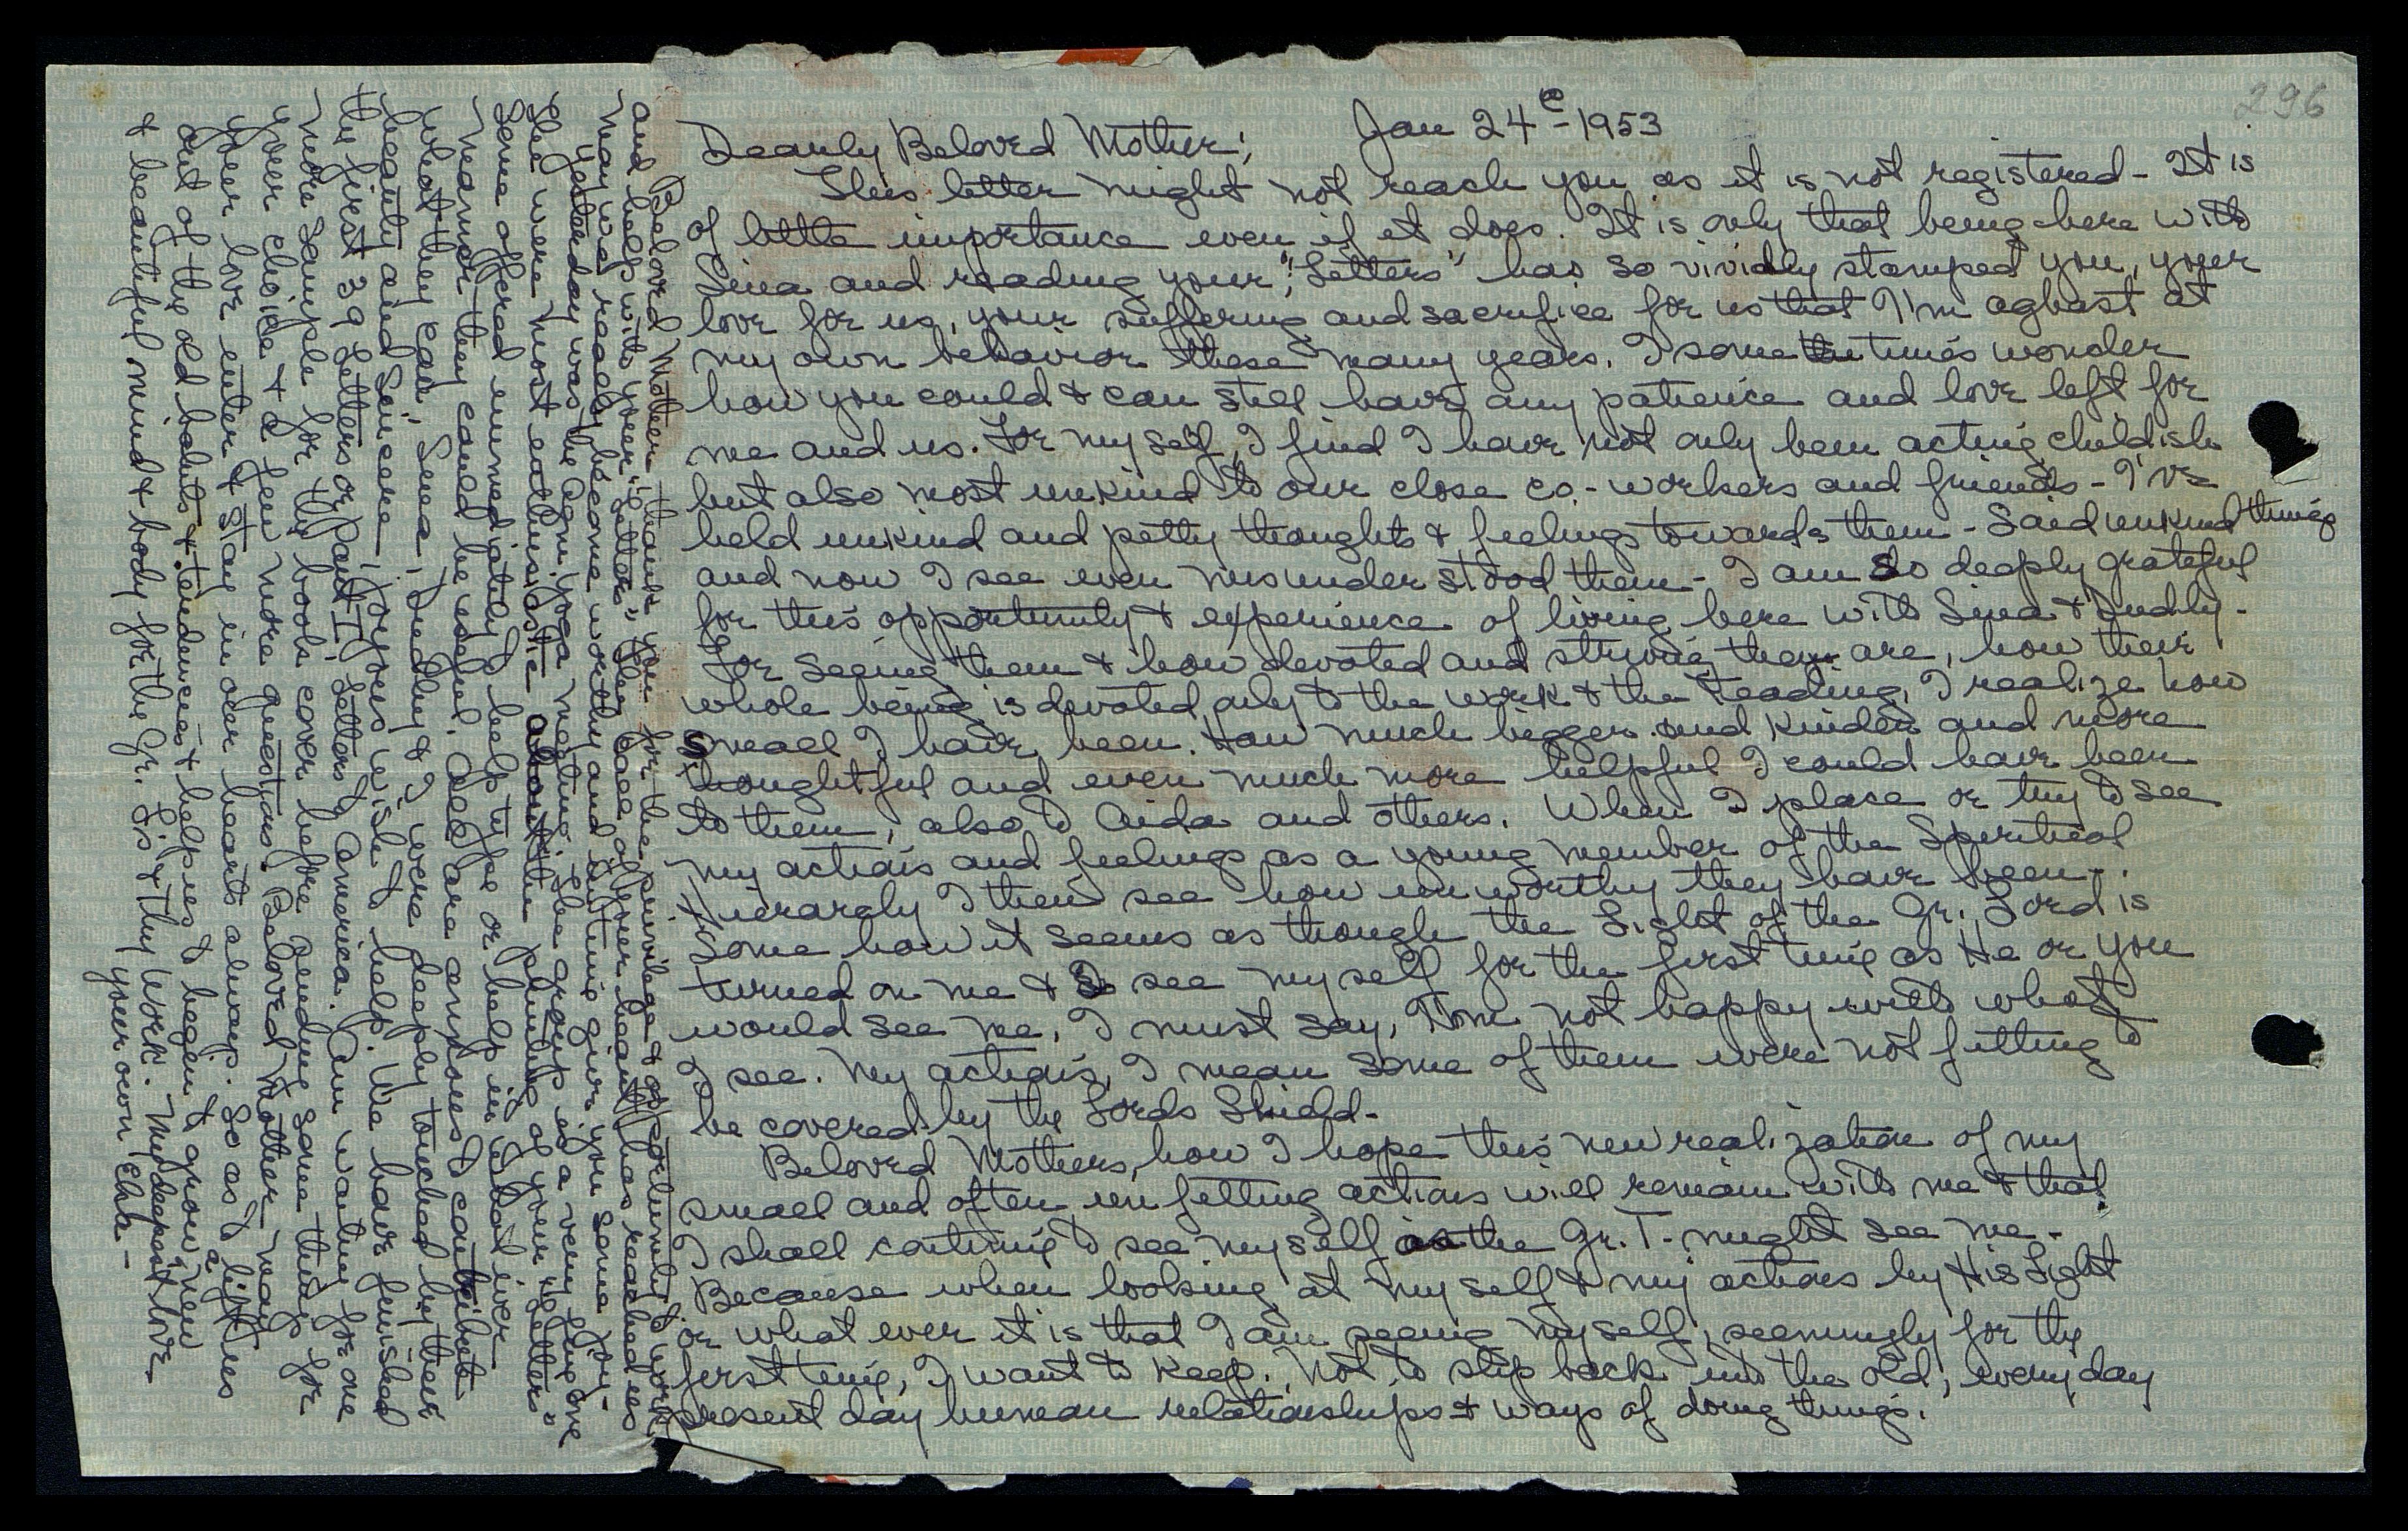 296
Jan 24e - 1953
Dearly Beloved Mother;
This letter might not reach you as it is not registered - It is
of little importance even if it does. It is only that being here with
Sina and reading your "Letters" has so vividly stamped you, your
love for us, your suffering and sacrifice for us that I'm aghast at
my own behavior these many years. I some times wonder
how you could & can still have any patience and love left for
me and us. For my self, I find I have not only been acting childish
but also most unkind to our close co-workers and friends - I've
held unkind and petty thoughts & feelings towards them - Said unkind things
and now I see even misunderstood them - I am so deeply grateful
for this opportunity & experience of living here with Sina & Dudley -
For seeing them & how devoted and striving they are, how their
whole being is devoted only to the work & the Teaching, I realize how
small I have been. How much bigger and kinder and more
thoughtful and even much more helpful I could have been
to them, also to Aida and others. When I place or try to see
my actions and feelings as a young member of the Spiritual
Hierarchy I then see how unworthy they have been.
Some how it seems as though the Light of the Gr. Lord is
turned on me & I see my self for the first time as He or you
would see me, I must say, I'm not happy with what
I see. My actions, I mean some of them were not fitting to
be covered by the Lords Shield -
Beloved Mother, how I hope this new realization of my
small and often unfitting actions will remain with me & that
I shall continue to see my self as the Gr. T. might see me -
Because when looking at my self & my actions by His Light
or what ever it is that I am seeing my self, seemingly for the
first time, I want to keep. Not to slip back into the old, every day
present day human relationships & ways of doing things.
Beloved Mother, thank you for the privilege & opportunity to work
and help with your "Letters" The call of your heart has reached us
may we really become worthy and in time give you some joy -
Yesterday was the Agni Yoga meeting, the group is a very fine one
She were most enthusiastic about the printing of your "Letters"
Some offered immediately to help type or help in what ever
manner they could be useful. All are anxious to contribute
what they can. Sina, Dudley & I were deeply touched by their
beauty and sincere, joyous wish to help. We have finished
the first 39 Letters or Part I, Letters to America. Am waiting for one
more sample for the book cover before sending some things for
your choice & a few more questions. Beloved Mother - may
your love enter & stay in our hearts always. So as to lift us
out of the old habits & tendencies & help us to begin to grow a new
& beautiful mind & body for the Gr. L's & Thy Work. My deepest love
your own Ehla -